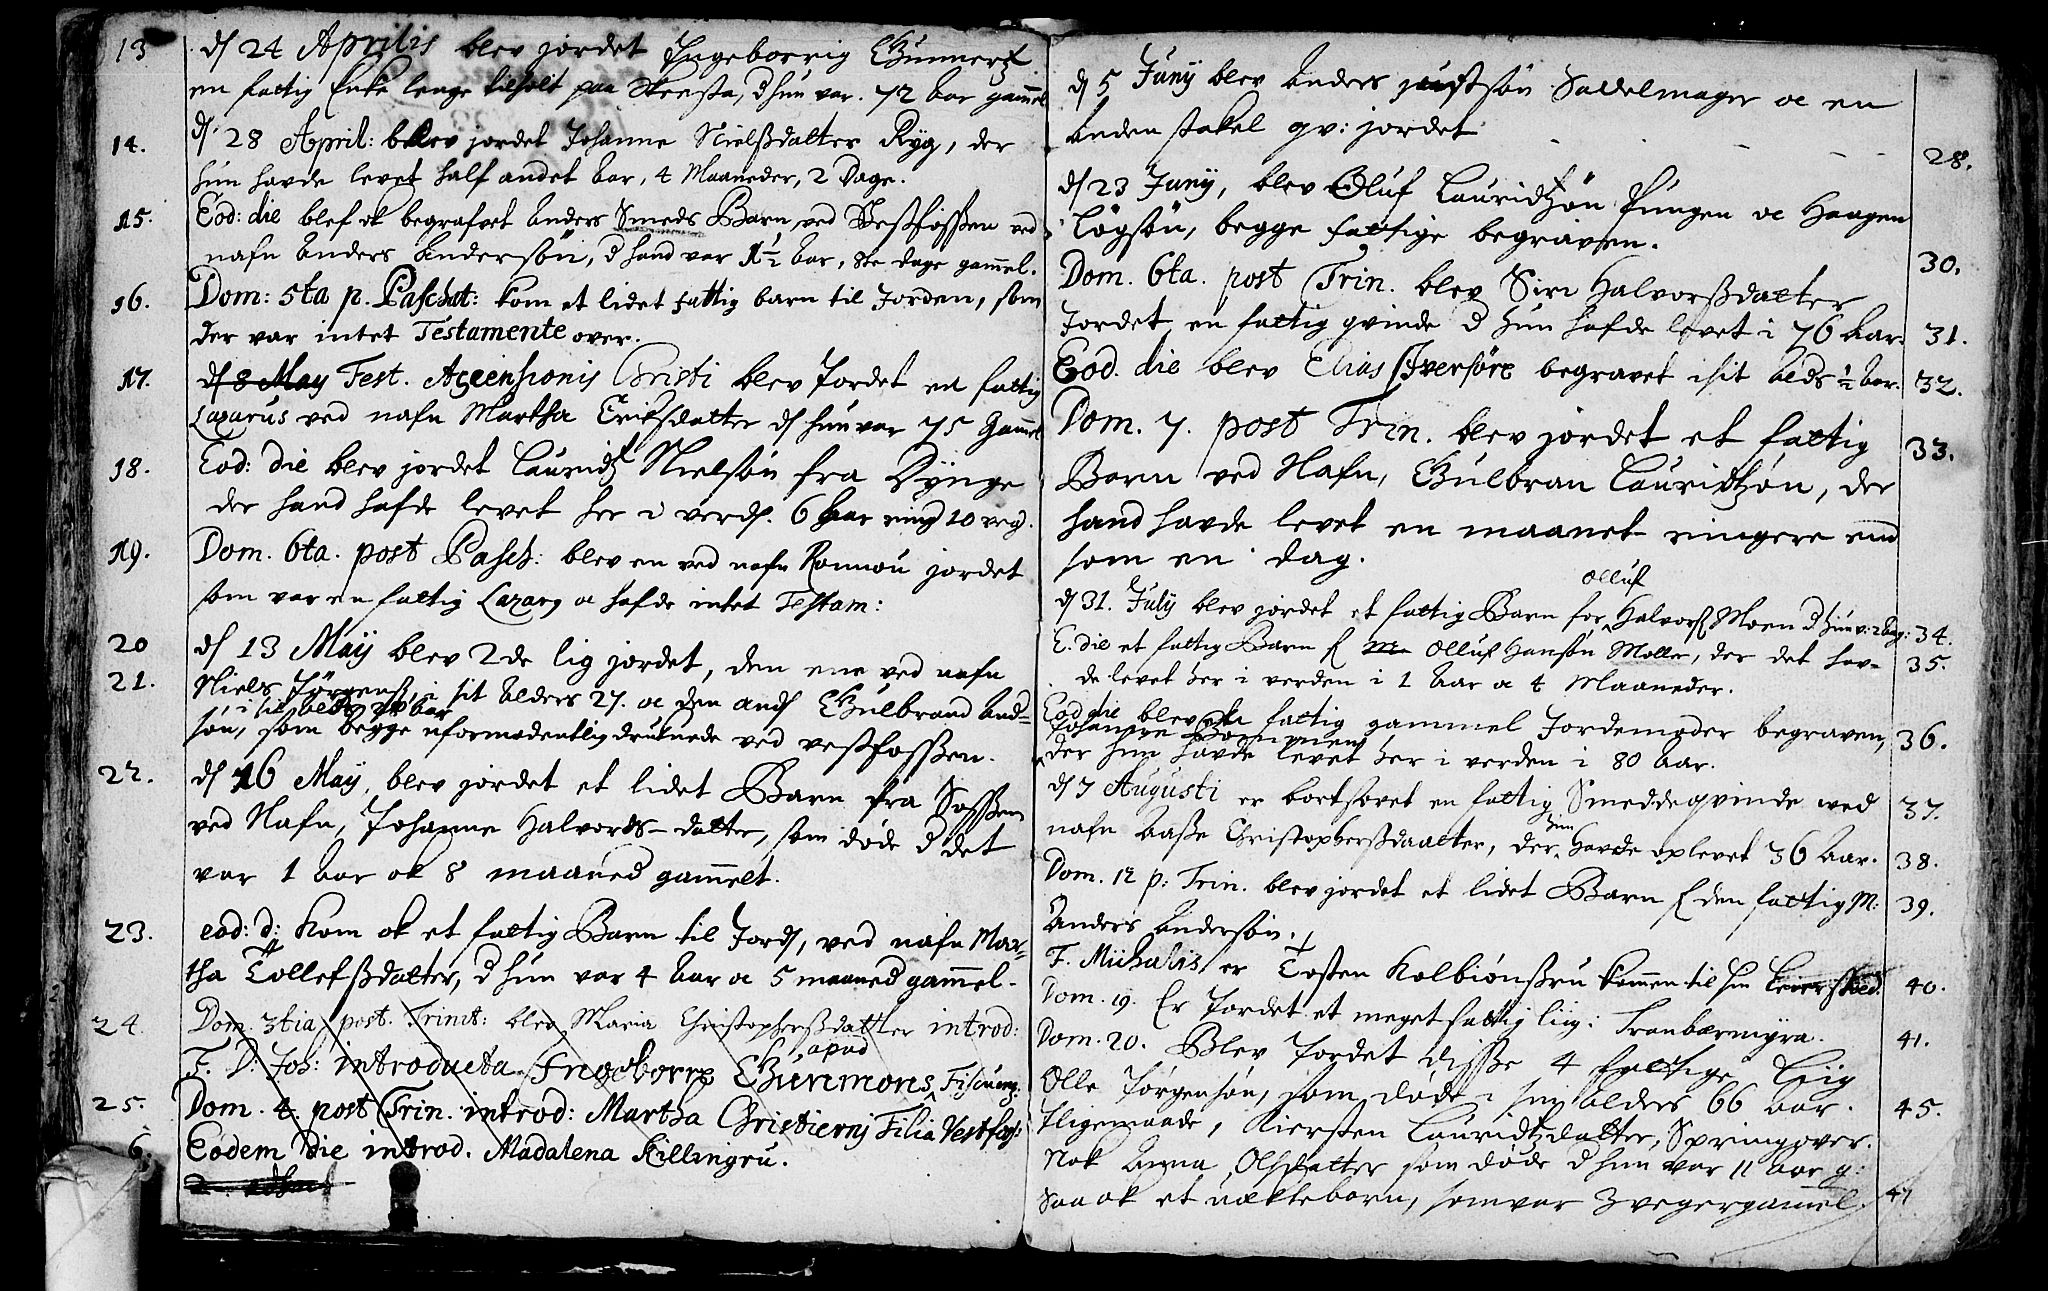 13 d 24 Aprilis blev jordet Ingeborrig Gunnertz
en fattig Enke lenge tilholt paa Skensta, d hun var. 72 Aar gammel
14. d 28 April: blev jordet Johanne Nielßdatter Ryg, der
hun havde levet half andet Aar, 4 Maaneder, 2 Dage.
15. Eod: die blef ok begrafvet Anders Smeds Barn, ved Vestfosßen ved
nafn Anders Andersøn, d hand var 1½ Aar, dage gamel.
16. Dom: 5ta p. Paschat: kom et lidet fattig barn til Jorden, som
der var intet Testamente over.
17. d 8 May Fest. Ascensionis Christi blev Jordet en fattig
Lazarus ved nafn Martha Eriksdatter d hun var 75 Gamel
18. Eod: die blev jordet Lauridtz Nielsøn fra Dynge
der hand hafde levet her i verd. 6 Aar ring 10 veg.
19. Dom. 6ta. post Pasch: blev en ved nafn Ronnou jordet
som var en fattig Lazar9 oc hafde intet Testam:
20 d 13 Maij blev 2de lig jordet, den ene ved nafn
21. Niels Jørgens, i sit Alders 27. oc den and Gulbrand And=
i sit Alders Aar
søn, som begge uformodentlig druknede ved vestfosßen.
22. d 16 May, blev jordet et lidet Barn fra Fosßen
ved Nafn, Johanne Halvords-datter, som døde d det
var 1 Aar ok 8 maaned gamelt.
23. eod: d: kom ok et fattig Barn til Jord, ved nafn Mar=
tha Tollefßdatter, d hun var 4 Aar oc 5 maaned gamel.
24. Dom: 3tia post. Trinit: blev Maria Christopherßdatter introd:
F. D: Joh: introducta Ingeborre Gunmons apud
25. Dom. 4. post Trin. introd: Martha Christierni Filia Vestfoss:
6. Eodem die introd. Madalena Killingru.
d 5 Junij blev Anders justsøn Sadelmager oc en
Anden stakel qv: jordet 28.
d 23 Junij, blev Oluf Lauridtzøn Pungen oc Haagen
Løgsøn, begge fattige begraven. 30.
Dom. 6ta. post Trin. blev Siri Halvorßdatter
Jordet en fattig qvinde d hun hafde levet i 76 Aar. 31.
Eod. die blev Elias Iversøre begravet i sit Alds ½ Aar. 32.
Dom. 7. post Trin. blev jordet et fattig
Barn ved Nafn, Gulbran Lauridtzøn, der 33.
hand havde levet en maanet ringere end
som en dag.
Olluf
d 31. July blev jordet et fattig Barn for Halvors Moen d hun v: 2 34.
E. die et fattig Barn f Olluf Hansøn Møller, der det hav- 35.
de levet her i verden i 1 Aar oc 4 Maaneder.
Eod die blev fattig gammel Jordemoder begraven, 36.
Johanne
der hun havde levet her i verden i 80 Aar.
d 7 Augusti er bortsovet en fattig Smeddeqvinde ved 37.
hun
nafn Aaße Christopherßdaatter, der havde oplevet 36 Aar. 38.
Dom. 12 p: Trin. blev jordet et lidet Barn f den fattig M: 39.
Anders Andersøn.
F. Michalis er Tosten Kolbiønßru kommen til sin 40.
Dom. 19. Er Jordet et meget fattig liig: Tranbærmyra. 41.
Dom. 20. Blev Jordet disße 4 fattige Liig
Olle Jørgensøn, som døde i sin alders 66 Aar. 45.
Ifligemaade, Kiersten Lauridtzdatter, Springover.
Nok Anna Olsdatter som døde d hun var 11 Aar g:
Saa ok et uækteborn, som var 3 veger gamel. 47